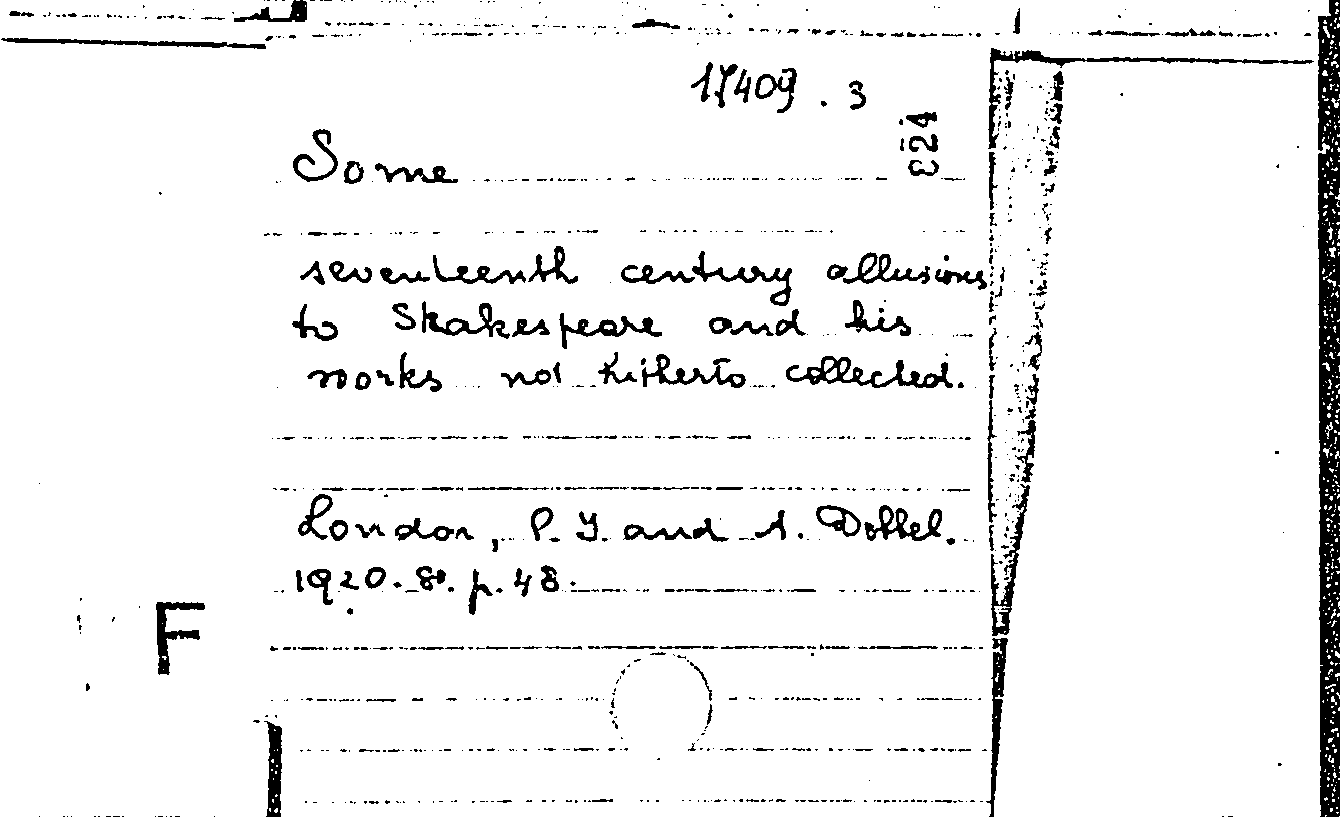 17409.3
€24
Some
seventeenth century allusions
to Shakespeare and his
works not hitherto collected.
London, P. J. and A. Dobbel.
1920. 8º. p. 48.
F